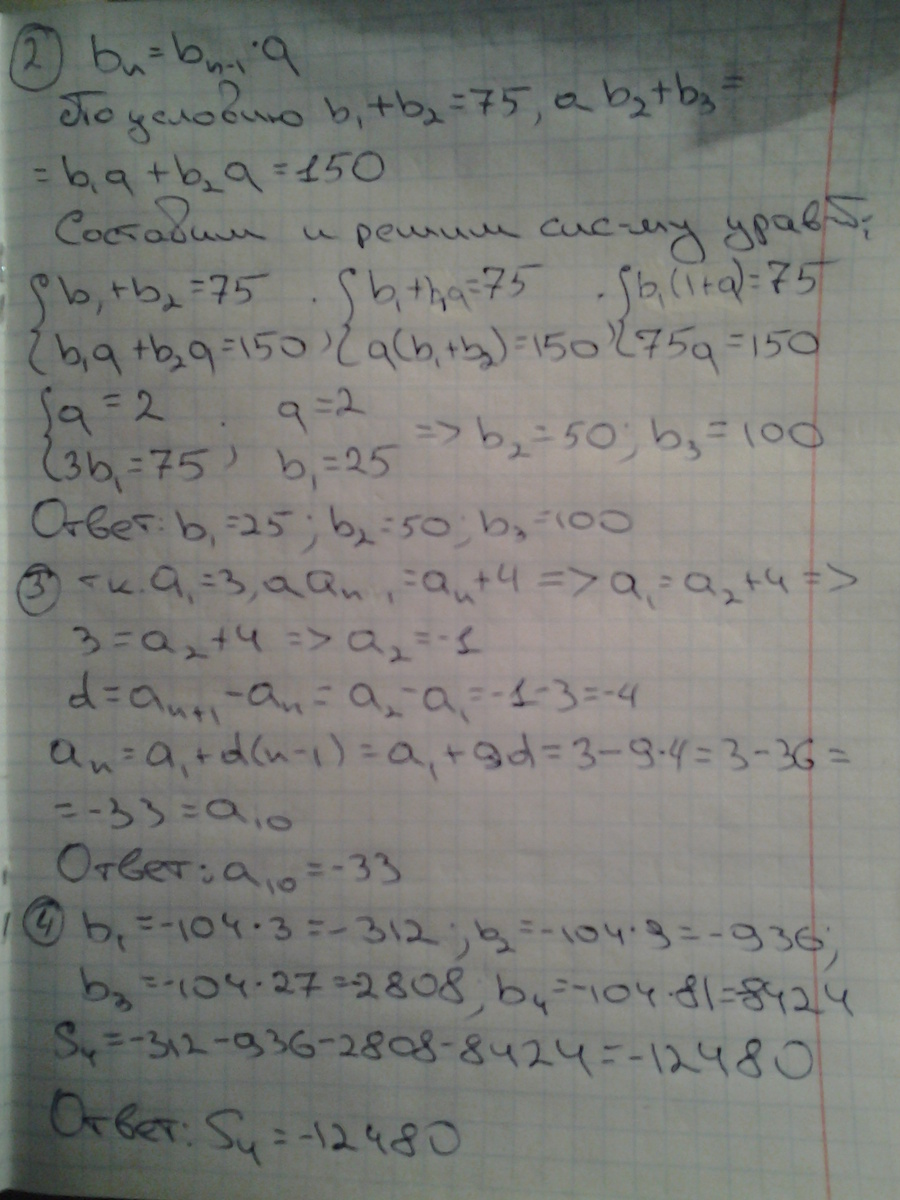 2) bₙ = bₙ₋₁·q
По условию b₁+b₂=75, а b₂+b₃=
=b₁q+b₂q=150
Составим и решим сис-му уравн.;
{b₁+b₂=75 . {b₁+b₁q=75 . {b₁(1+q)=75
{b₁q+b₂q=150 ; {q(b₁+b₂)=150 ; {75q=150
{q=2 ; q=2
{3b₁=75 b₁=25 => b₂=50; b₃=100
Ответ: b₁=25; b₂=50; b₃=100
3) т.к. a₁=3, а aₙ₋₁=aₙ+4 => a₁=a₂+4 =>
3=a₂+4 => a₂=-1
d=aₙ₊₁-aₙ=a₂-a₁=-1-3=-4
aₙ=a₁+d(n-1)=a₁+9d=3-9·4=3-36=
=-33=a₁₀
Ответ: a₁₀=-33
4) b₁=-104·3=-312; b₂=-104·9=-936;
b₃=-104·27=-2808; b₄=-104·81=-8424
S₄=-312-936-2808-8424=-12480
Ответ: S₄=-12480